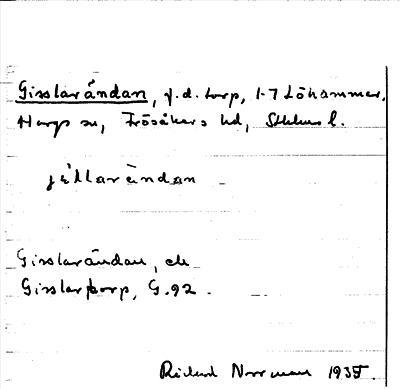 Gisslarändan, f.d. torp, 1-7 Löhammar,
Hargs sn, Frösåkers hd, Sthlms l.
jïllarändan
Gisslarändan, ek
Gisslartorp, G.92.
Rickard Norrman 1935.